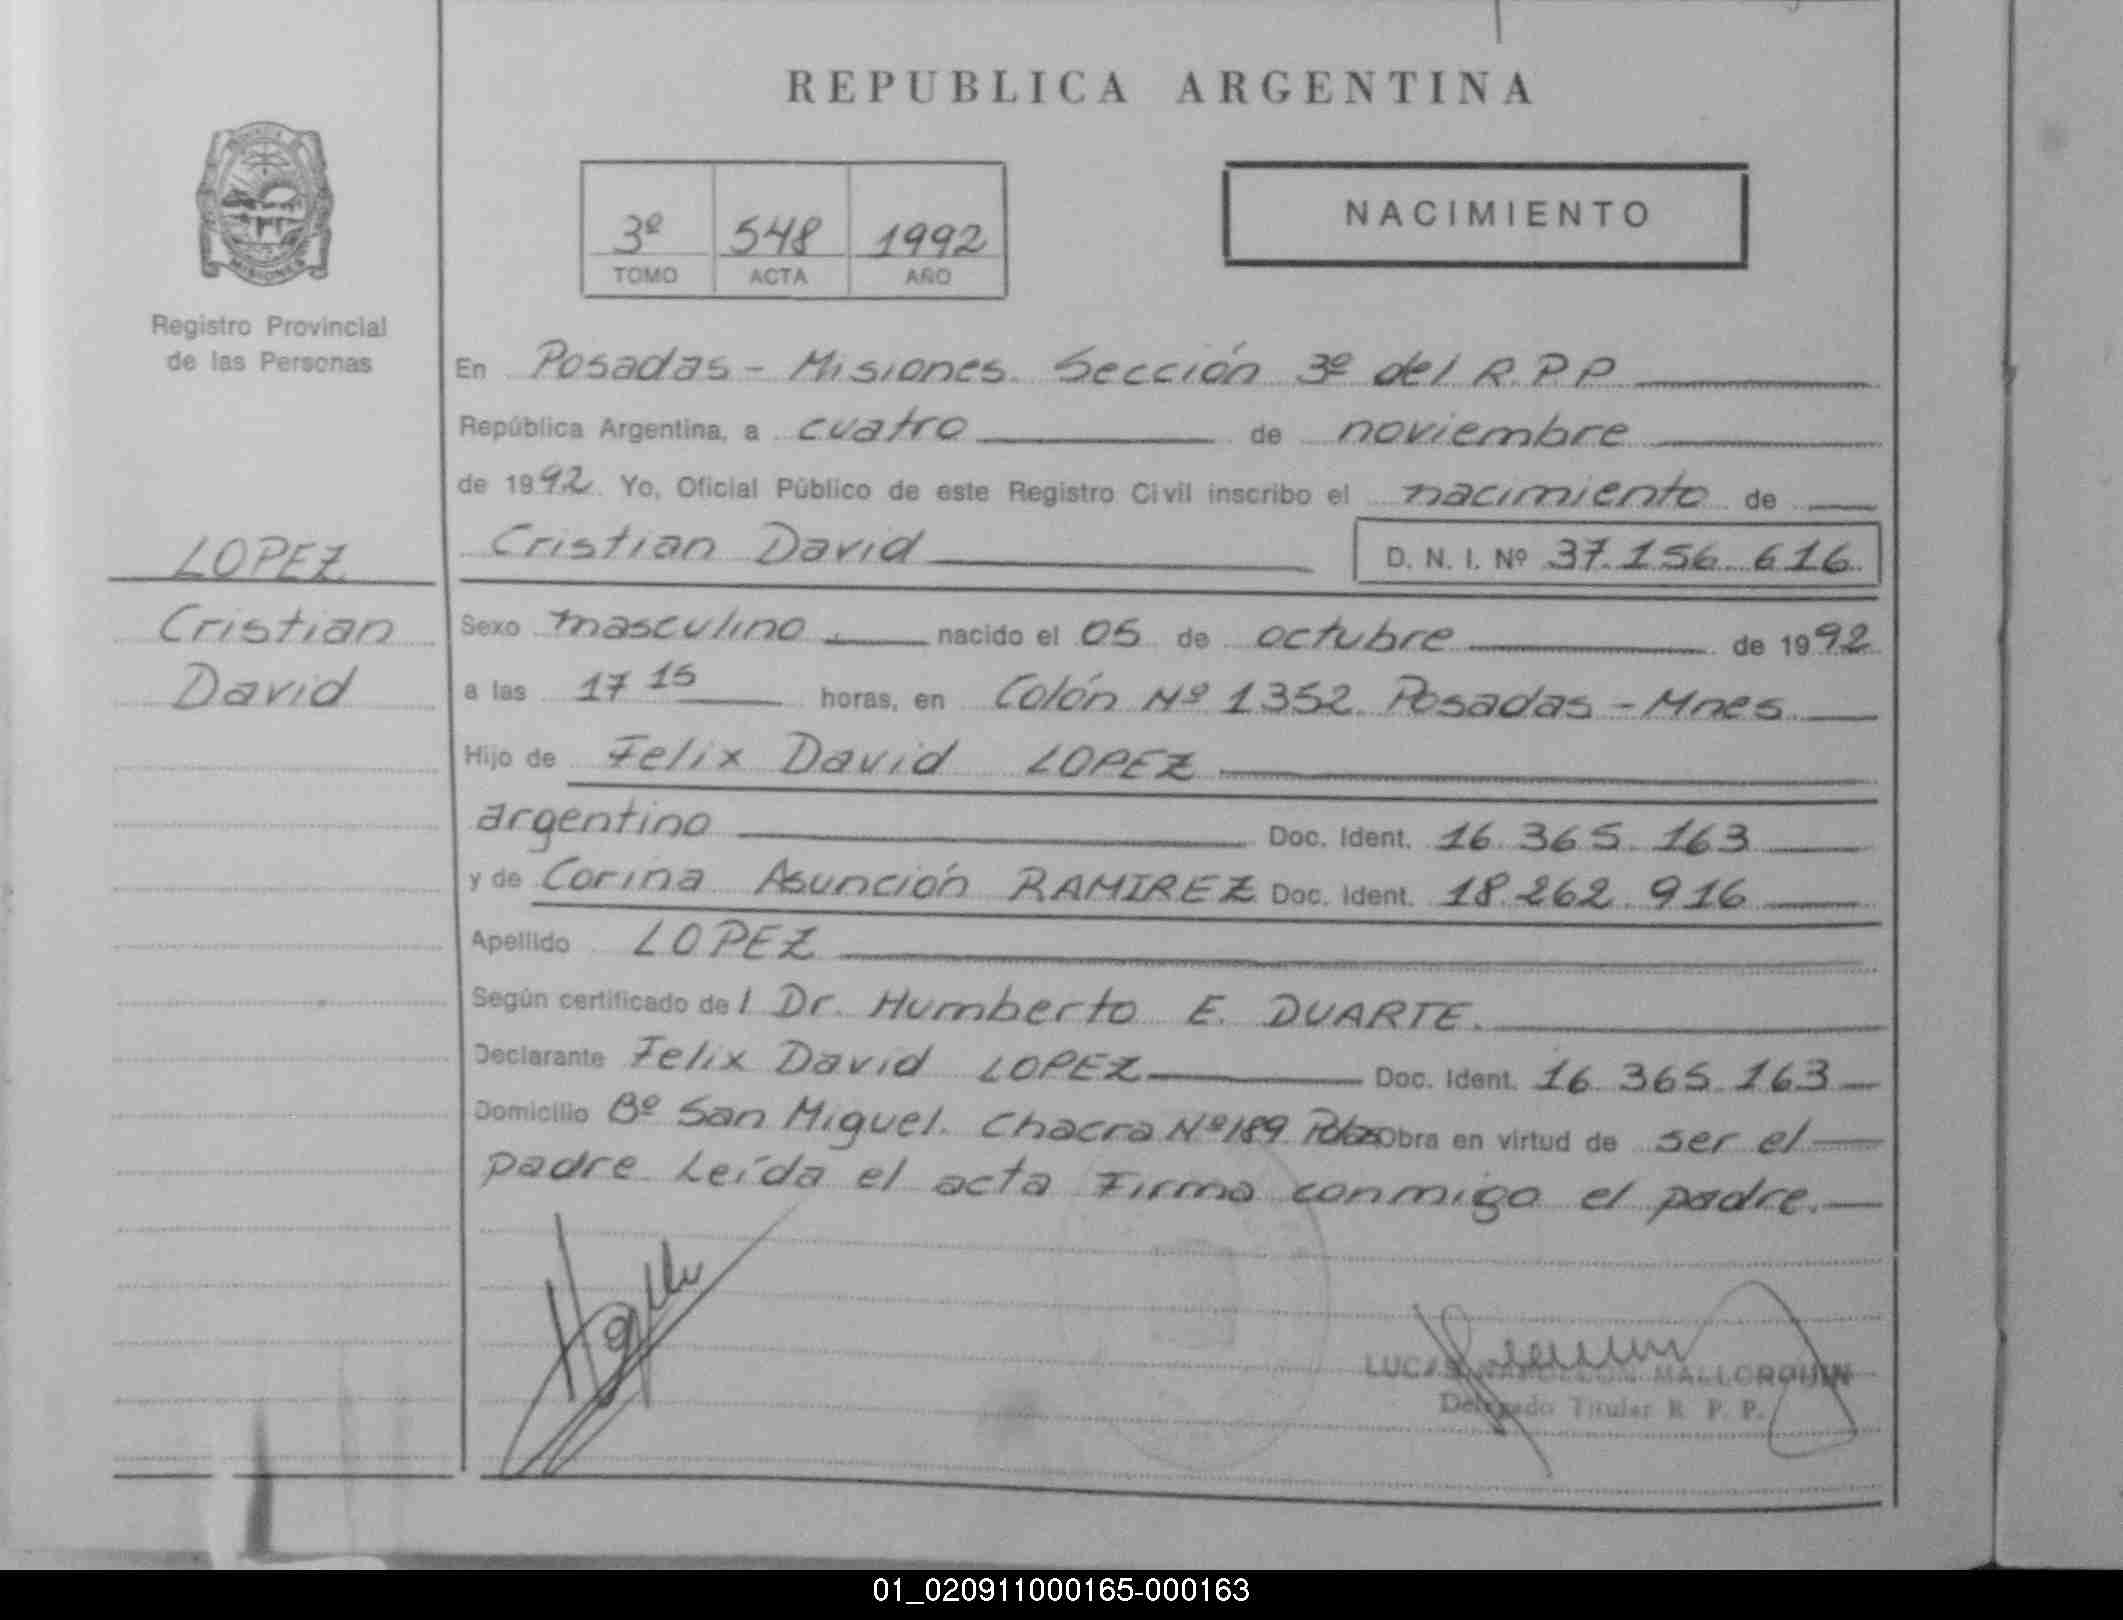 REPUBLICA ARGENTINA
MISIONES
Registro Provincial
de las Personas
3º 548 1992
TOMO ACTA AÑO
NACIMIENTO
En Posadas - Misiones. Sección 3º del R.P.P
República Argentina, a cuatro de noviembre
de 1992. Yo, Oficial Público de este Registro Civil inscribo el nacimiento de
Cristian David D. N. I. Nº 37.156.616
LOPEZ
Cristian
David
Sexo masculino nacido el 05 de octubre de 1992
a las 17 15 horas, en Colón Nº 1352. Posadas - Mnes.
Hijo de Felix David LOPEZ
argentino Doc. Ident. 16.365.163
y de Corina Asunción RAMIREZ Doc. Ident. 18.262.916
Apellido LOPEZ
Según certificado del Dr. Humberto E. DUARTE.
Declarante Felix David LOPEZ Doc. Ident. 16.365.163
Domicilio Bº San Miguel. Chacra Nº 189 Obra en virtud de ser el
padre. Leída el acta Firma conmigo el padre.
LUCAS NAPOLEON MALLORQUIN
Delegado Titular R. P. P.
01_020911000165-000163